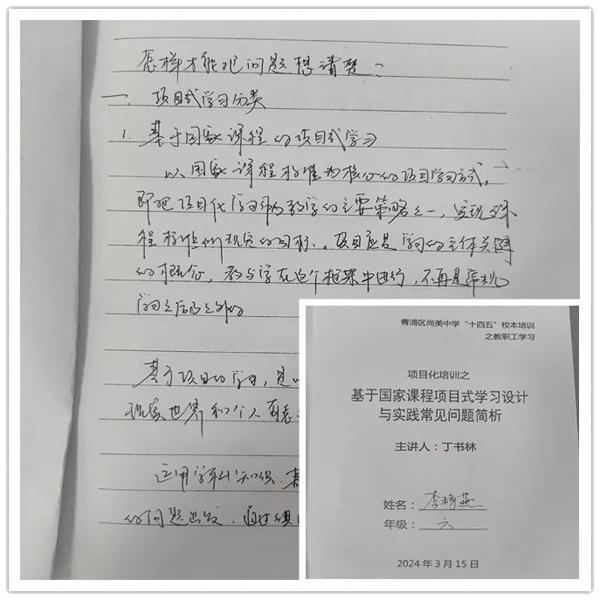 怎样才能把问题想清楚？
一、项目式学习分类
1. 基于国家课程的项目式学习
以国家课程标准为核心的项目学习方式，
即把项目化学习作为教学的主要策略之一，实现课
程标准所规定的目标。项目应是学习的主体关键
的概念，教与学在这个框架中进行，不再是单机
学习之后之外的
基于项目的学习，是
现实世界和个人有意
运用学科知识，基
的问题出发，通过组
青浦区尚美中学“十四五”校本培训
之教职工学习
项目化培训之
基于国家课程项目式学习设计
与实践常见问题简析
主讲人：丁书林
姓名：李 燕
年级：六
2024年3月15日